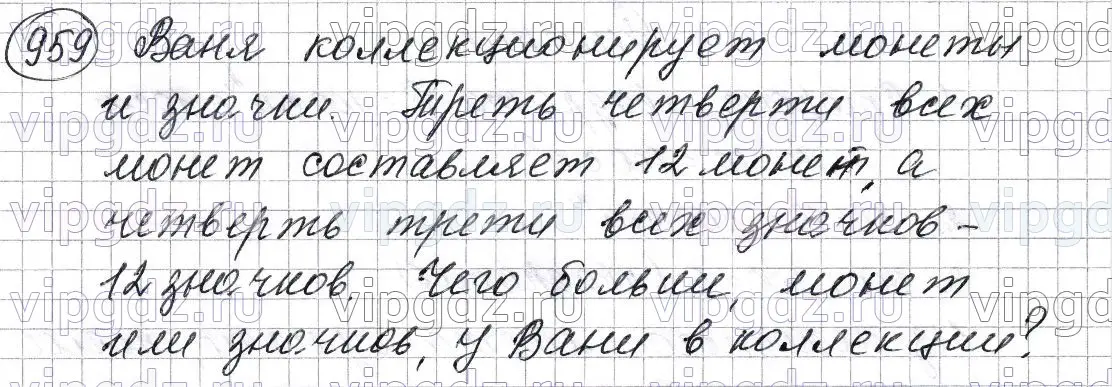 959 Ваня коллекционирует монеты
и значки. Треть четверти всех
монет составляет 12 монет, а
четверть трети всех значков -
12 значков. Чего больше, монет
или значков, у Вани в коллекции?